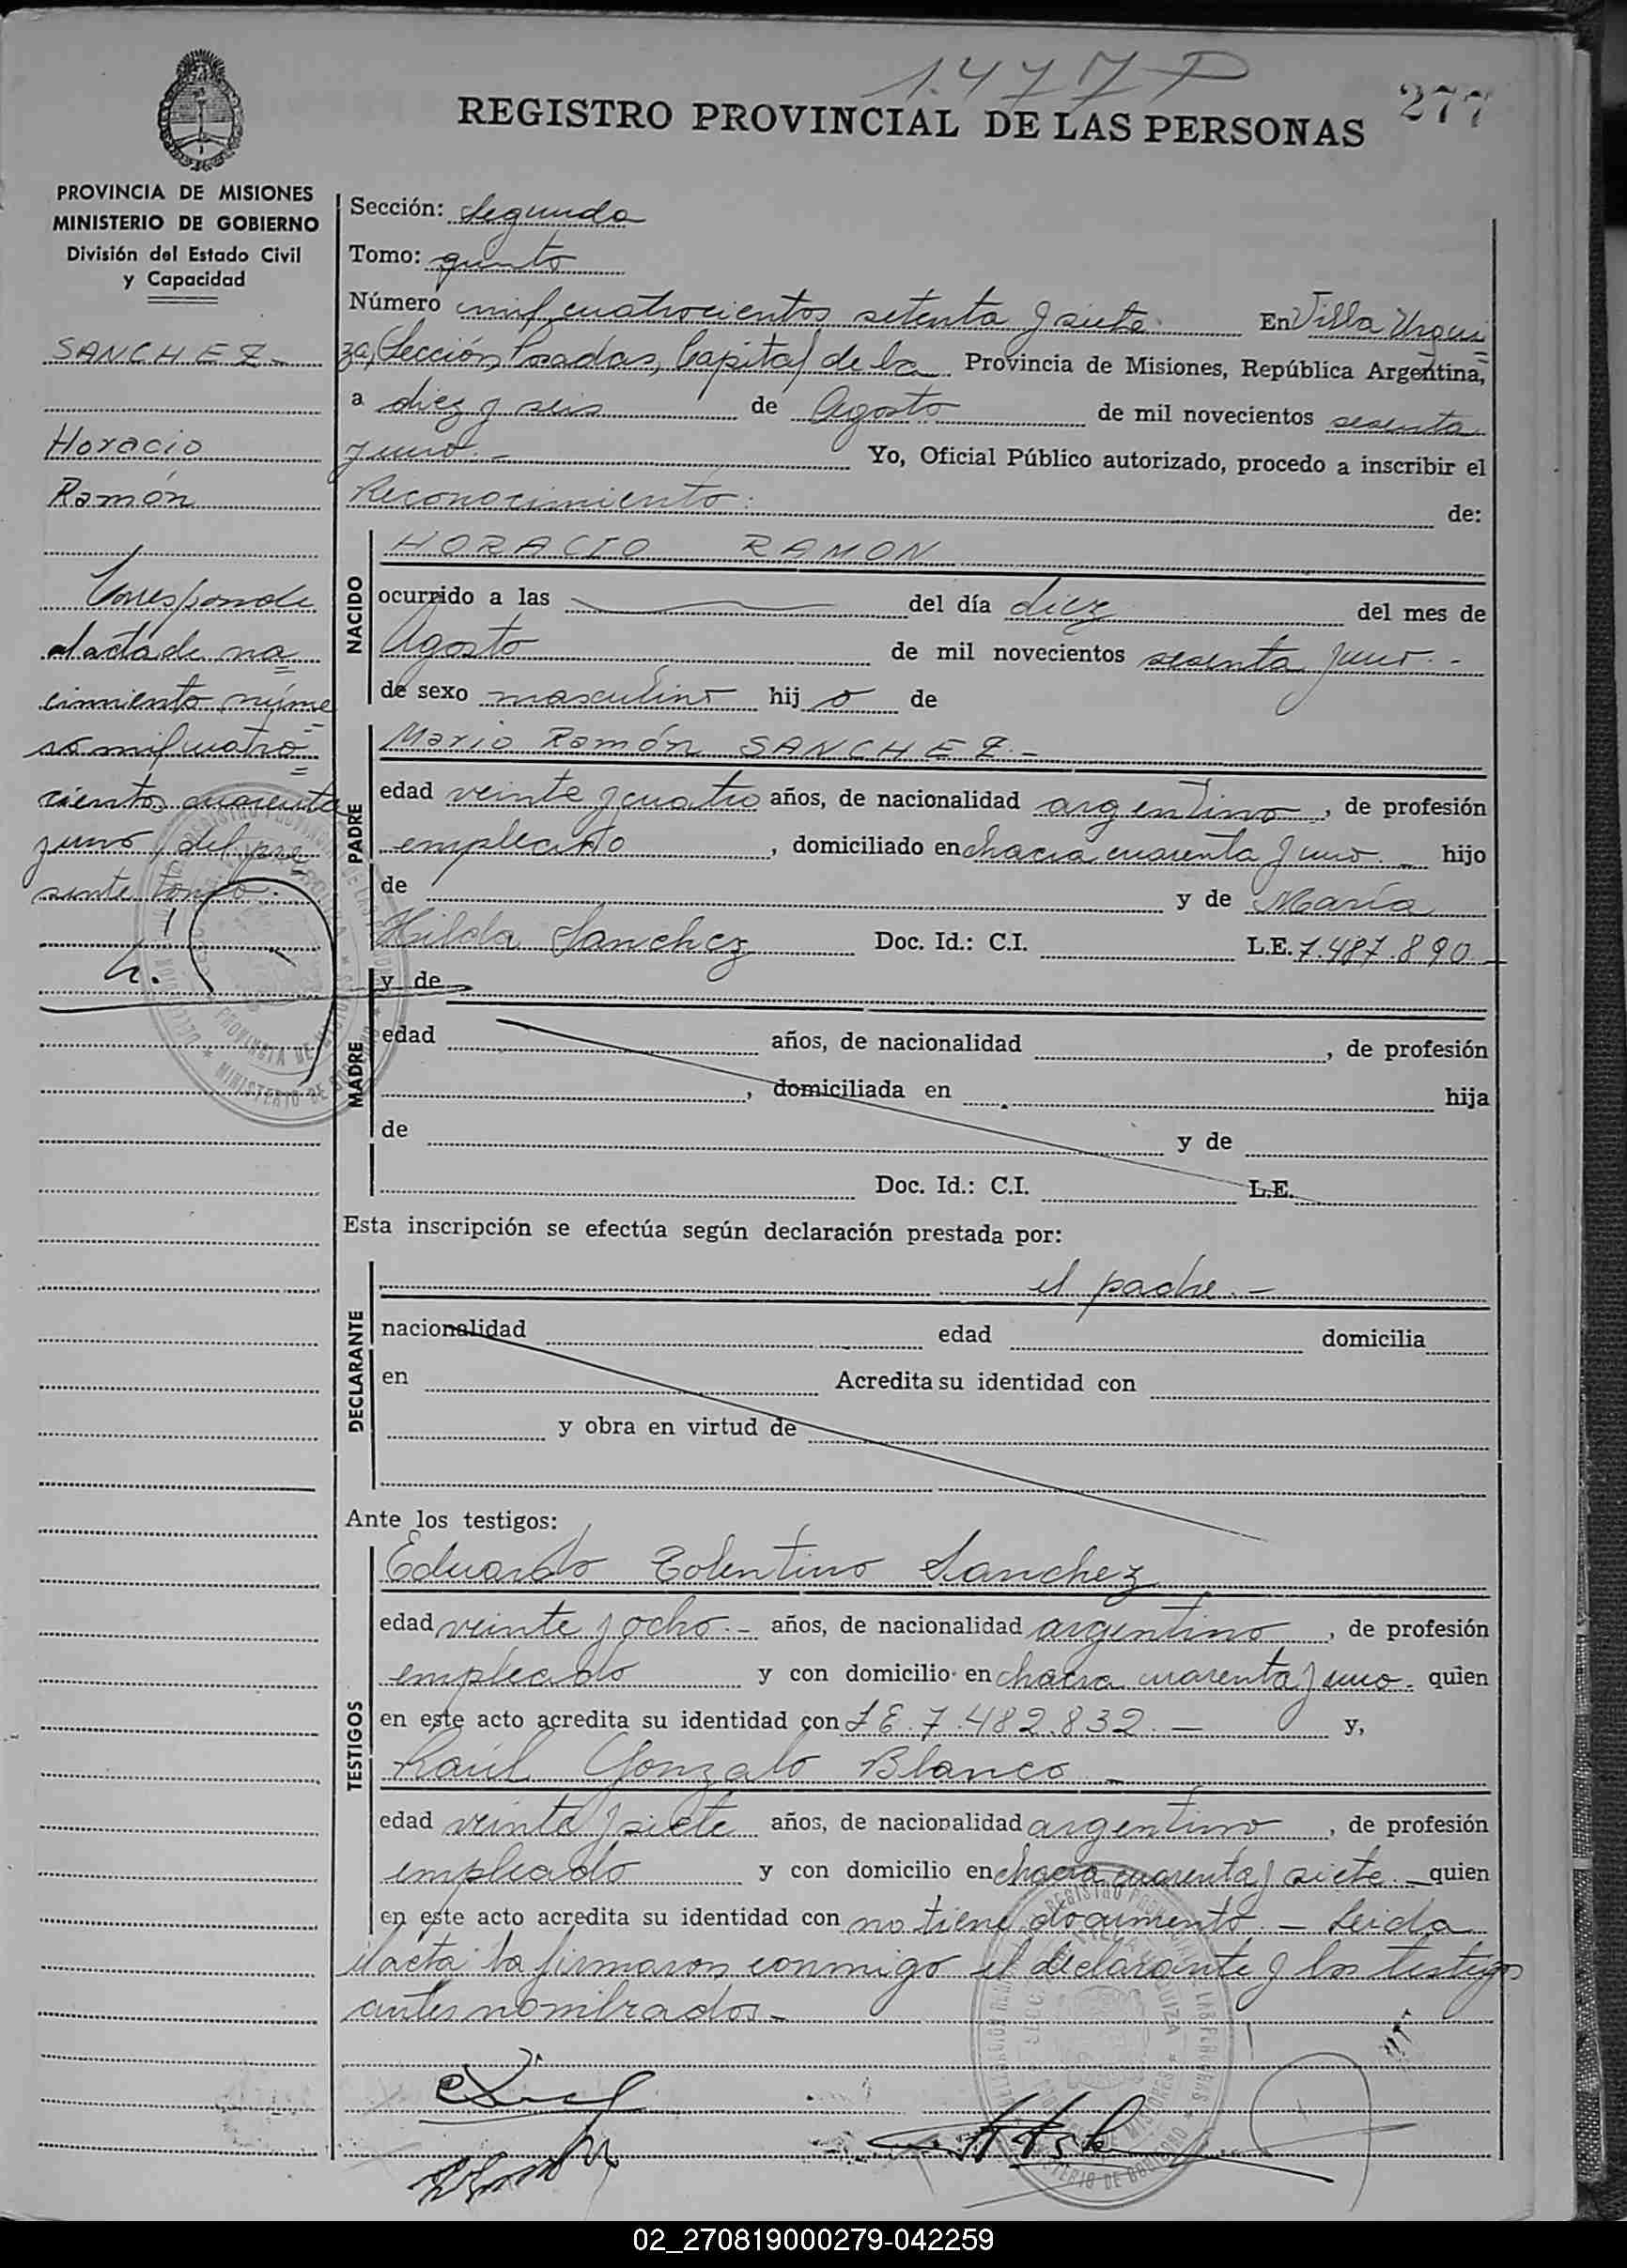 1477 P
277
REGISTRO PROVINCIAL DE LAS PERSONAS
PROVINCIA DE MISIONES
MINISTERIO DE GOBIERNO
División del Estado Civil
y Capacidad
SANCHEZ
Horacio
Ramón
Corresponde
al acta de na=
cimiento núme=
ro mil cuatro=
cientos cuarenta
y uno, del pre
sente tomo.
Sección: Segunda
Tomo: quinto
Número mil cuatrocientos setenta y siete En Villa Urqui=
za, Sección Posadas, Capital de la Provincia de Misiones, República Argentina,
a diez y seis de Agosto de mil novecientos sesenta
y uno.- Yo, Oficial Público autorizado, procedo a inscribir el
Reconocimiento: de:
NACIDO
HORACIO RAMON
ocurrido a las del día diez del mes de
Agosto de mil novecientos sesenta y uno.-
de sexo masculino hij o de
PADRE
Mario Ramón SANCHEZ.-
edad veinte y cuatro años, de nacionalidad argentino, de profesión
empleado, domiciliado en chacra cuarenta y uno.- hijo
de y de María
Hilda Sanchez Doc. Id.: C.I. L.E. 7.487.890.-
MADRE
y de
edad años, de nacionalidad , de profesión
, domiciliada en hija
de y de
Doc. Id.: C.I. L.E.
Esta inscripción se efectúa según declaración prestada por:
DECLARANTE
el padre.-
nacionalidad edad domicilia
en Acredita su identidad con
y obra en virtud de
Ante los testigos:
TESTIGOS
Eduardo Tolentino Sanchez
edad veinte y ocho.- años, de nacionalidad argentino, de profesión
empleado y con domicilio en chacra cuarenta y uno.- quien
en este acto acredita su identidad con LE.7.482.832.- y,
Raúl Gonzalo Blanco -
edad veinte y siete años, de nacionalidad argentino, de profesión
empleado y con domicilio en chacra cuarenta y siete.- quien
en este acto acredita su identidad con no tiene documento.- Leida
el acta la firmaron conmigo el declarante y los testigos
antes nombrados.-
02_270819000279-042259